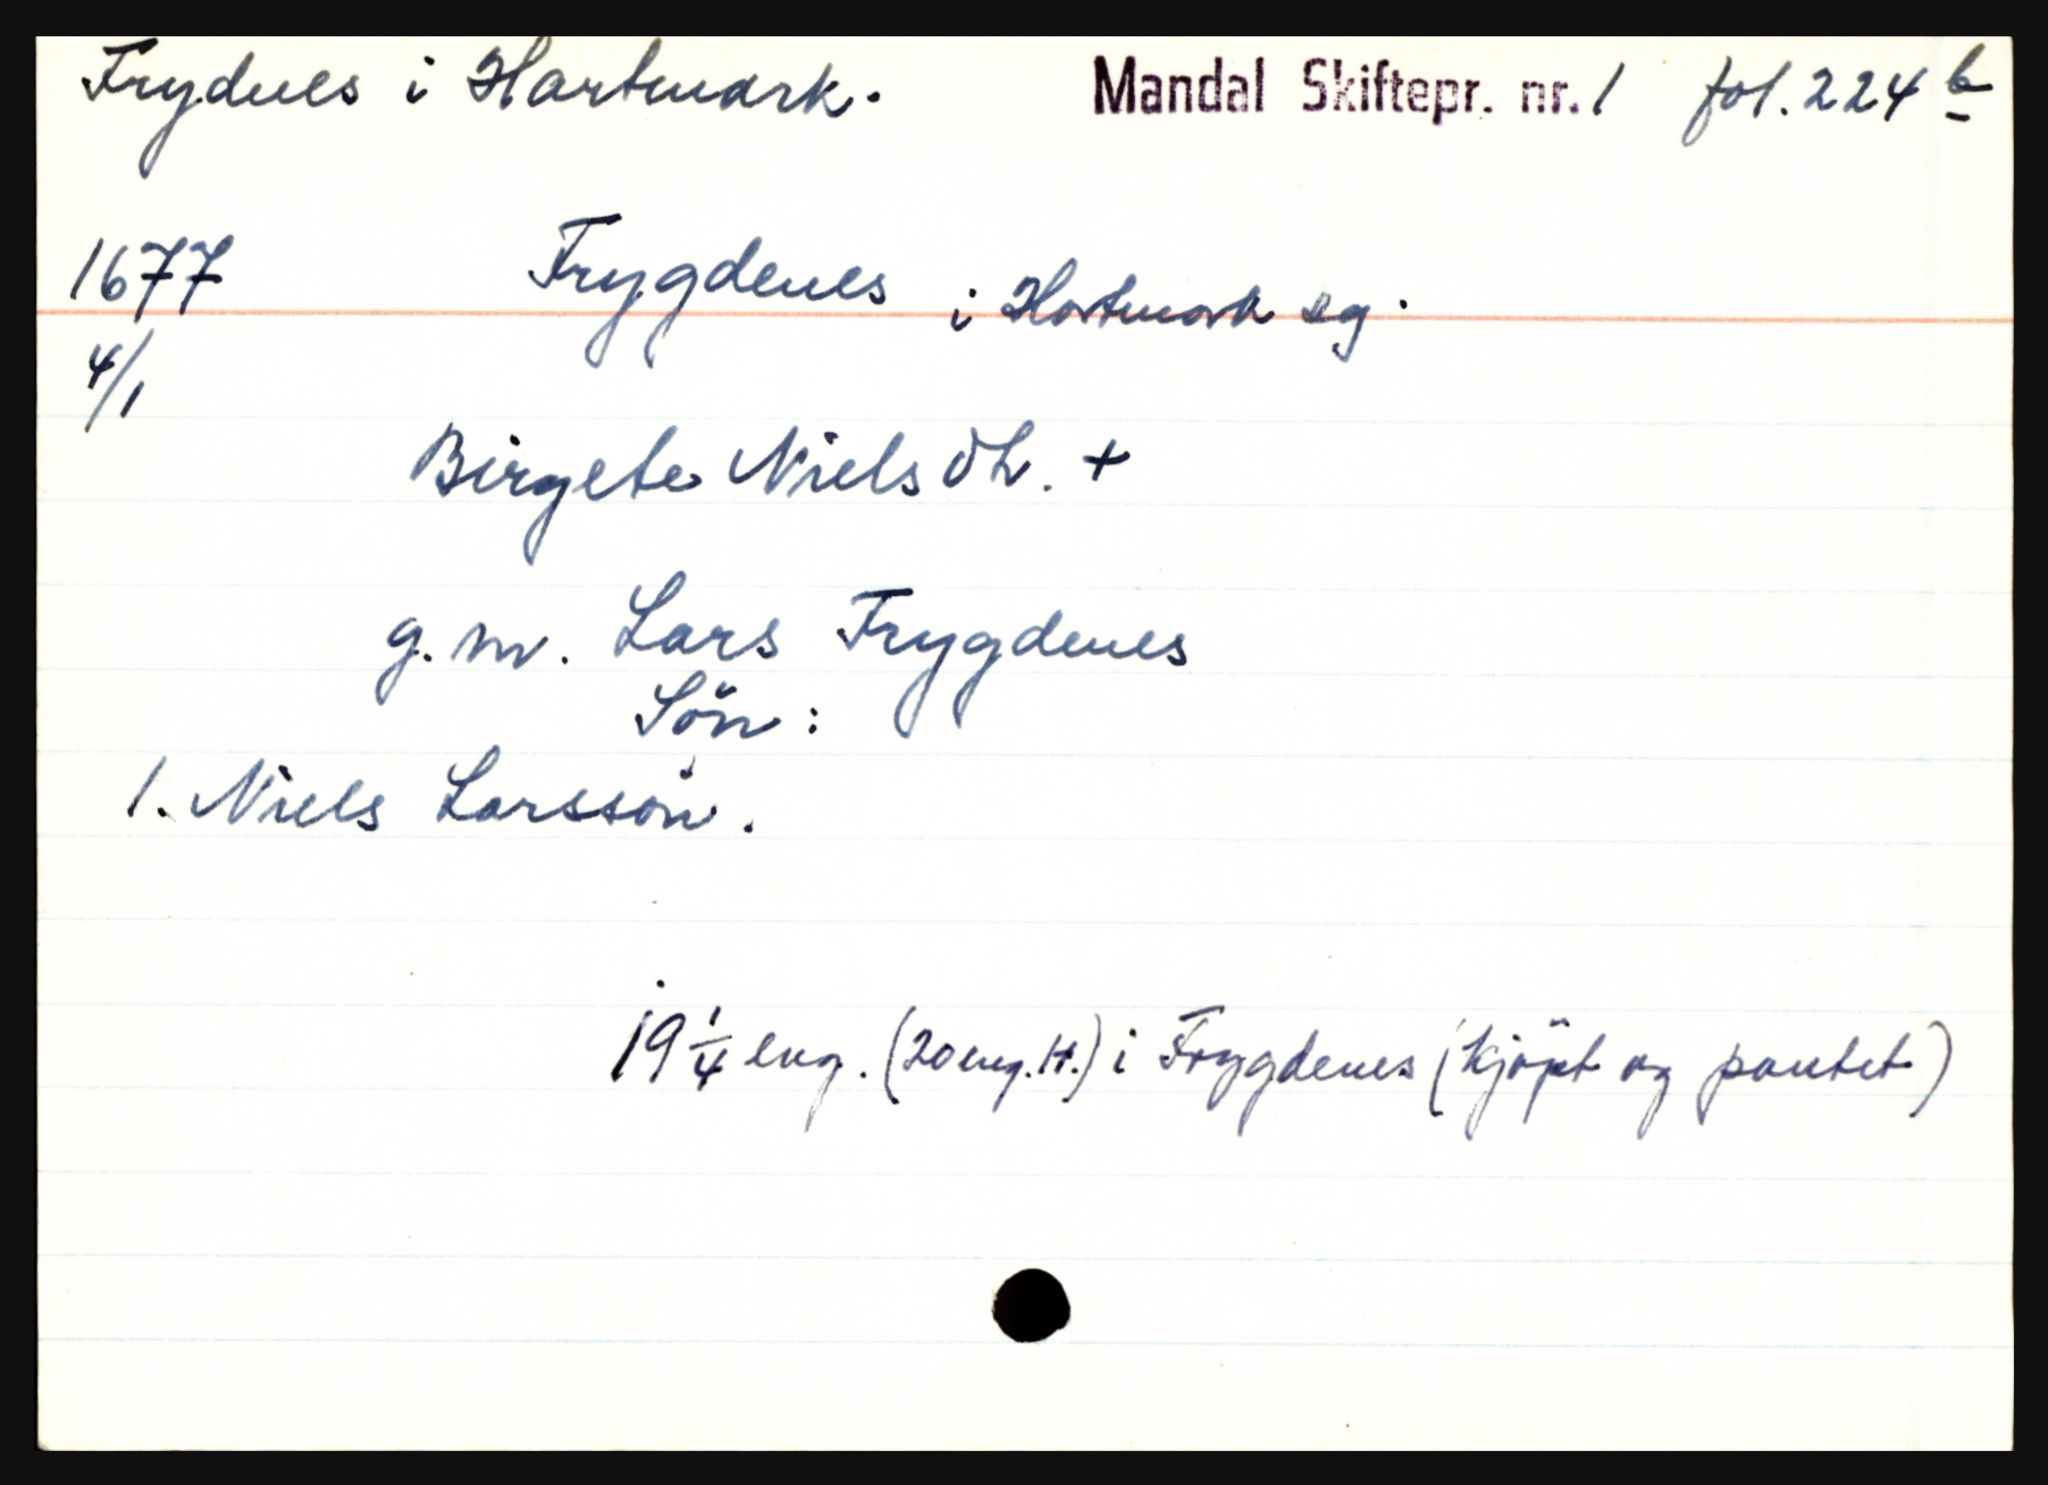 Frydnes i Hartmark. Mandal Skiftepr. nr. 1 fol. 224 b
1677 Frygdenes i Hartmark sg.
4/1
Birgete Nielsdtr. +
g. m. Lars Frygdenes
Sön:
1. Niels Larssön.
19 1/4 eng. (20 eng. H.) i Frygdenes (kjöpt og pantet)